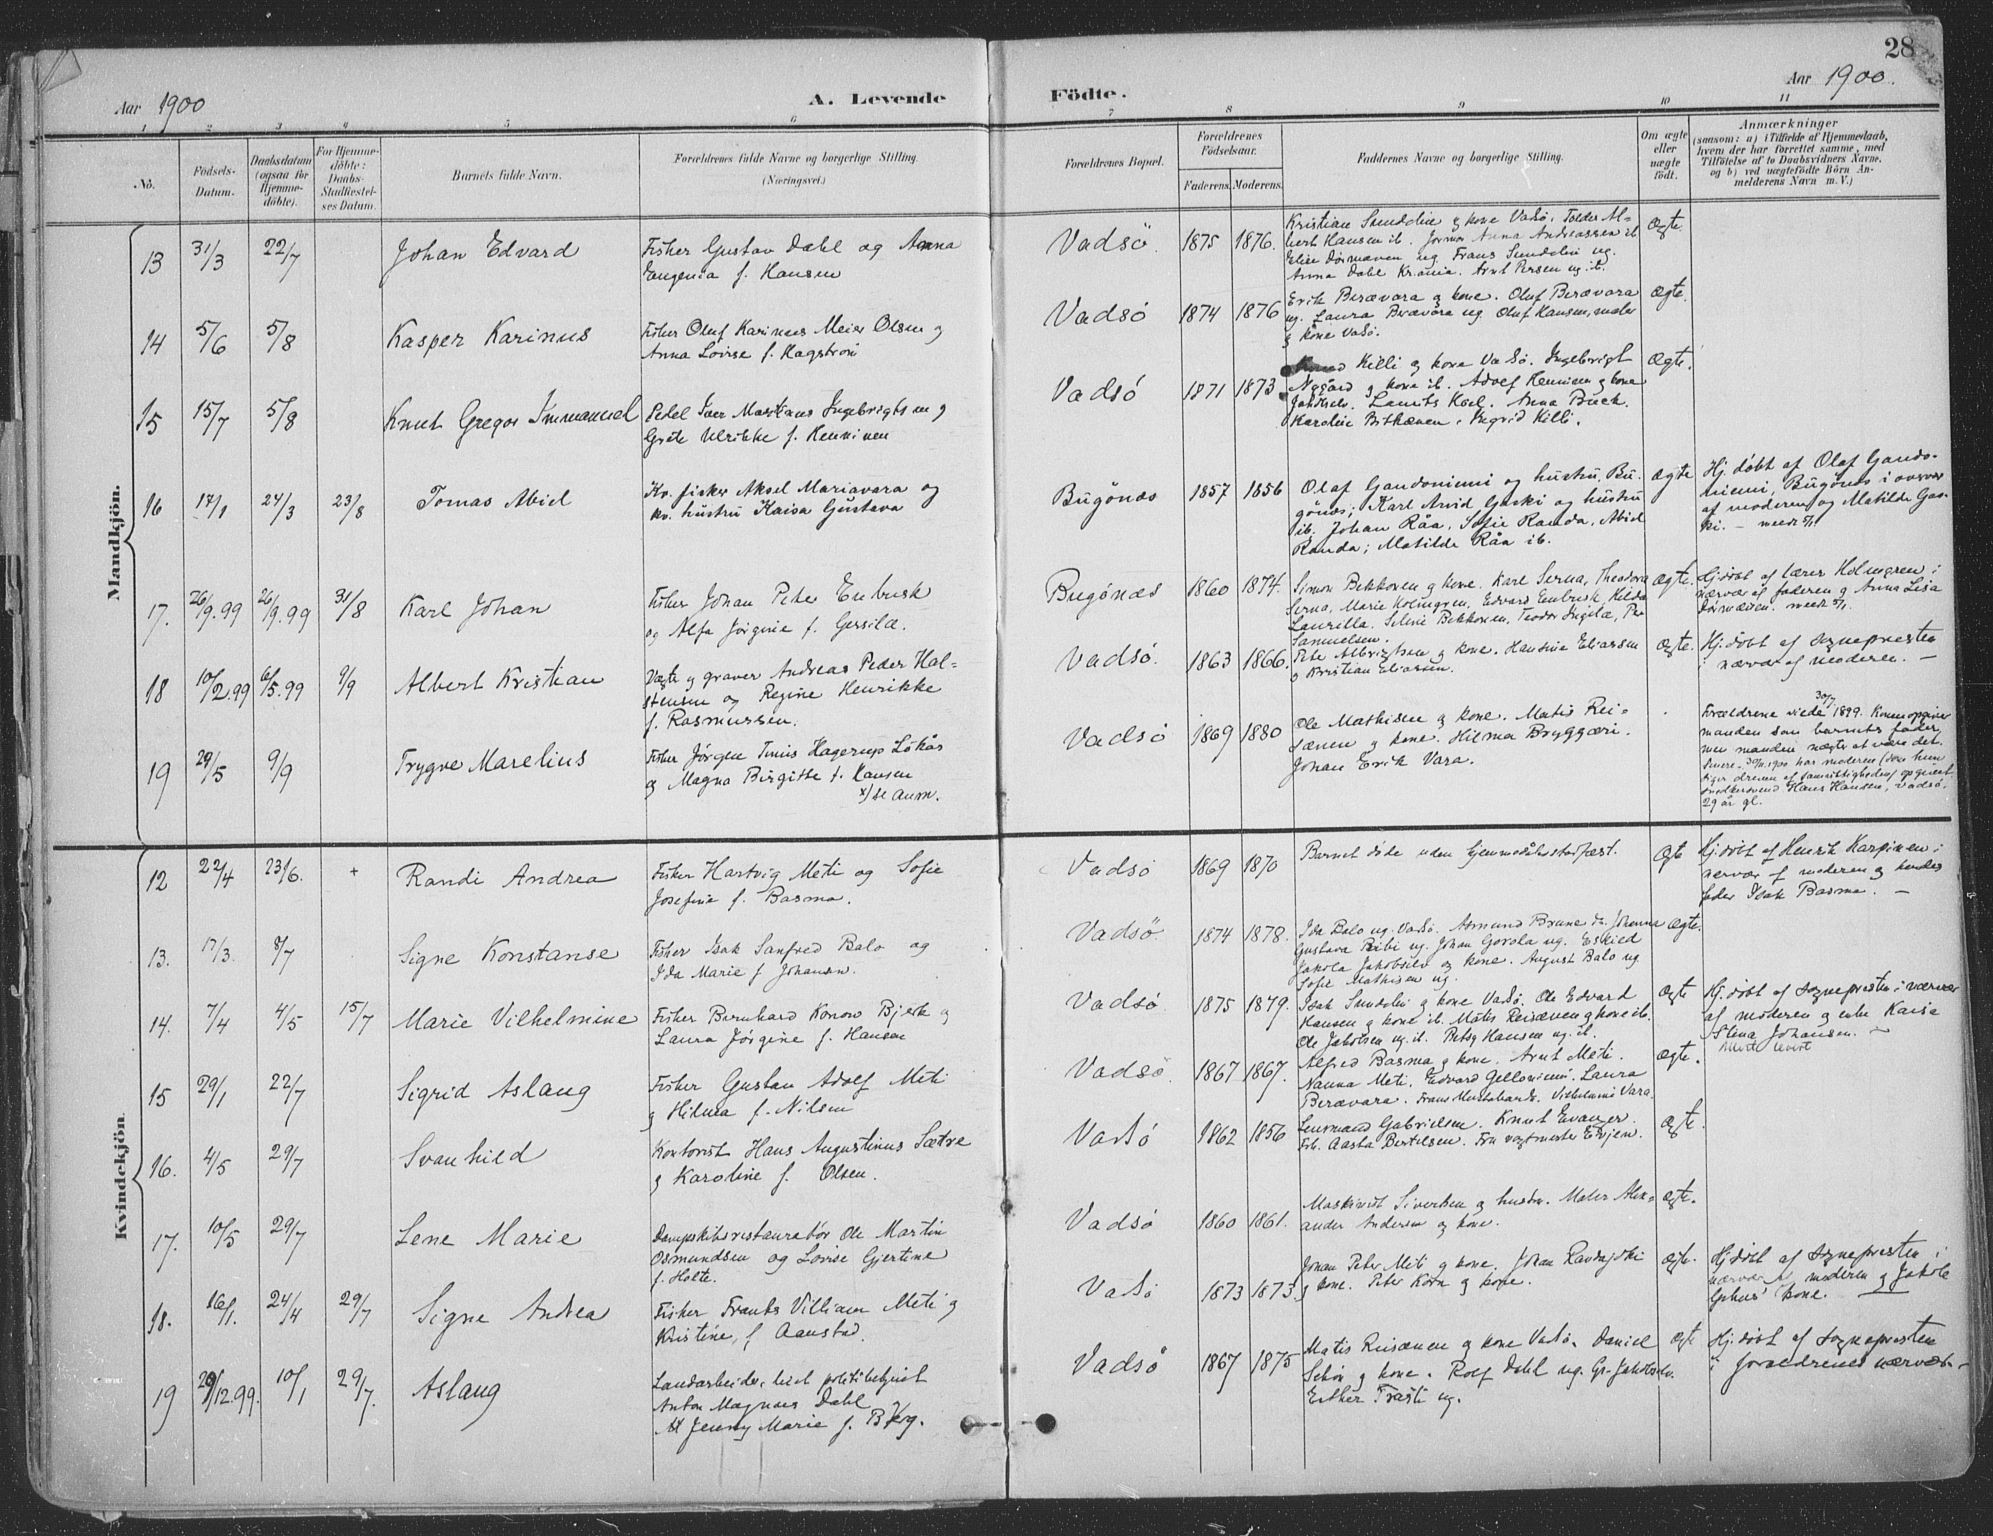 28
Aar 1900
A. Levende Födte.
Aar 1900.
1 2 3 4 5 6 7 8 9 10 11
No.
Födsels-
Datum.
Daabsdatum
(ogsaa for
Hjemme-
döbte).
For Hjemme-
döbte:
Daabs-
Stadfæstel-
ses Datum.
Barnets fulde Navn.
Forældrenes fulde Navne og borgerlige Stilling.
(Næringsvei.)
Forældrenes Bopæl.
Forældrenes
Födselsaar.
Faderens. Moderens.
Faddernes Navne og borgerlige Stilling.
Om ægte
eller
uægte
födt.
Anmærkninger
(saasom: a) i Tilfælde af Hjemmedaab,
hvem der har forrettet samme, med
Tilföielse af to Daabsvidners Navne,
og b) ved uægtefödte Börn An-
melderens Navn m. V.)
Mandkjön.
13 31/3 22/7 Johan Edvard
Fisker Gustav Dahl og Anna
Eugenia f. Hansen
Vadsö. 1875 1876.
Kristian Sundelin g kone Vadsö. Tolder Al-
bert Hansen ib. Anna Andreassen ib
Anna Dahl
Ægte.
14 5/6 5/8 Kasper Karinus
Fisker Oluf Karinus Meier Olsen g
Anna Lovise f. Hagström
Vadsö 1874 1876
Erik Beravara g kone. Oluf Beravara
ug. Laura Beravara ug. Oluf Hansen, maler
g kone Vadsö.
Ægte.
15 15/7 5/8 Knut Gregor Immanuel
Pedel Iver Martinus Ingebrigtsen g
Grete Ulrikke f. Henninen
Vadsö 1871 1873
Killi g kone Vadsö. Ingebrigt
Nygård g kone ib. Adolf Henninen g kone
Jakobselv. Laurits Anna Buck.
Karoline Ingrid Killi.
Ægte.
16 17/1 24/3 23/8 Tomas Abiel
Kv. fisker Aksel Mariavara og
kv. hustru Kaisa Gustava
Bugönæs 1857 1856
Olaf Gandoniemi og hustru, Bu-
gönæs; Karl Arvid og hustru
ib. Johan Råa, Sofie Randa, Abiel
Randa; Matilde Råa ib.
Ægte
Hj. döbt af Olaf Gando-
niemi, Bugönæs i overvær
af moderen og Matilde
17. 26/9.99 26/9.99 31/8 Karl Johan
Fisker Johan Peter Enbusk
og Alfa Jörgine f.
Bugönæs 1860 1874.
Simon Bekkonen g kone. Karl Serna, Theodora
Serna, Marie Holmgren, Edvard Enbusk, Hilda
Laurilla. Selini Bekkonen,
Samuelsen.
Ægte.
Hj. döbt af lærer Holmgren i
nærvær af faderen g Anna Lisa
18 10/2.99 6/5.99 9/9 Albert Kristian
Vægter g graver Andreas Peder Hal-
stensen og Regine Henrikke
f. Rasmussen.
Vadsö. 1863 1866.
Peter Albrigtsen g kone. Hansine Eliassen
g Kristian Eliassen.
Ægte.
Hj. döbt af sognepresten
i nærvær af moderen. —
19 29/5 9/9 Trygve Marelius
Fisker Jörgen Hagerup
og Magna Birgitte f. Hansen
x) se anm.
Vadsö 1869 1880
Ole Mathisen g kone. Matis Rei-
sænen g kone. Hilma Bryggari.
Johan Erik Vara.
Forældrene viede 30/7 1899. Konen opgiver
manden som barnets fader,
men manden nægter at være det.
Hans Hansen, Vadsö.
29 år gl.
Kvindekjön.
12 22/4 23/6. + Randi Andrea
Fisker Hartvig Meti og Sofie
Josefine f. Basma.
Vadsö 1869 1870
Barnet döde uden hjemmedåbsstadfæst.
Ægte
Hj. döbt af Henrik Karpinen i
nærvær af moderen g hendes
fader Isak Basma. —
13. 17/3. 8/7 Signe Konstanse
Fisker Isak Sanfred Balo og
Ida Marie f Johansen.
Vadsö. 1874 1878.
Ida Balo ug. Vadsö. Asmund Brune do. Johanna
Gustava ug. Johan Gorola ug. Eskild
Jakola Jakobselv og kone. August Balo ug
Sofie Mathisen ug.
Ægte.
14. 7/4 4/5 15/7 Marie Vilhelmine
Fisker Bernhard Konow Bjerk g
Laura Jörgine f. Hansen
Vadsö 1875 1879.
Isak Sundelin g kone Vadsö. Ole Edvard
Hansen g kone ib. Matis Reisænen g kone ib.
Ole Jakobsen ug. ib. Betsy Hansen ug. ib.
Ægte
Hj. döbt af sognepresten i nærvær
af moderen g enke Kaisa
Stina Johansen. —
15 29/1 22/7 Sigrid Aslaug
Fisker Gustav Adolf Meti
g Hilma f. Nilsen
Vadsö. 1867 1867.
Alfred Basma g kone. Arnt Meti.
Nanna Meti. Edvard Laura
Beravara. Frans Vilhelmine Vara.
Ægte.
16. 4/5 29/7 Svanhild
Kontorist Hans Augustinus Sætre
g Karoline f. Olsen.
Vadsö 1862 1856
Lensmand Gabrielsen. Knut Evanger.
Frk. Aasta Bertelsen. Fru vagtmester Evjen.
Ægte.
17. 10/5 29/7 Lene Marie
Dampskibsrestauratör Ole Martin
Osmundsen og Lovise Gjertine
f. Holte.
Vadsö 1860 1861.
Maskinist Sivertsen g hustru. Maler Alex-
ander Andersen og kone.
Ægte.
18. 16/1. 24/4 29/7 Signe Andrea
Fisker Frants Villiam Meti g
Kristine, f Aanstad.
Vadsö 1873 1873.
Johan Peter Meti g kone. Johan
g kone. Peter Korn g kone.
Ægte.
Hj. döbt af sognepresten i
nærvær af moderen g Jakob
kone. —
19 29/12.99. 10/1 29/7. Aslaug
Landarbeider, kist politibetjent
Anton Magnus Dahl
og Jenny Marie f. Berg.
Vadsö 1867 1875
Matis Reisænen g kone Vadsö. Daniel
g kone. Rolf Dahl ug. Gr. Jakobselv.
Esther ug.
Ægte
Hj. döbt af sognepresten
i forældrenes nærvær. —